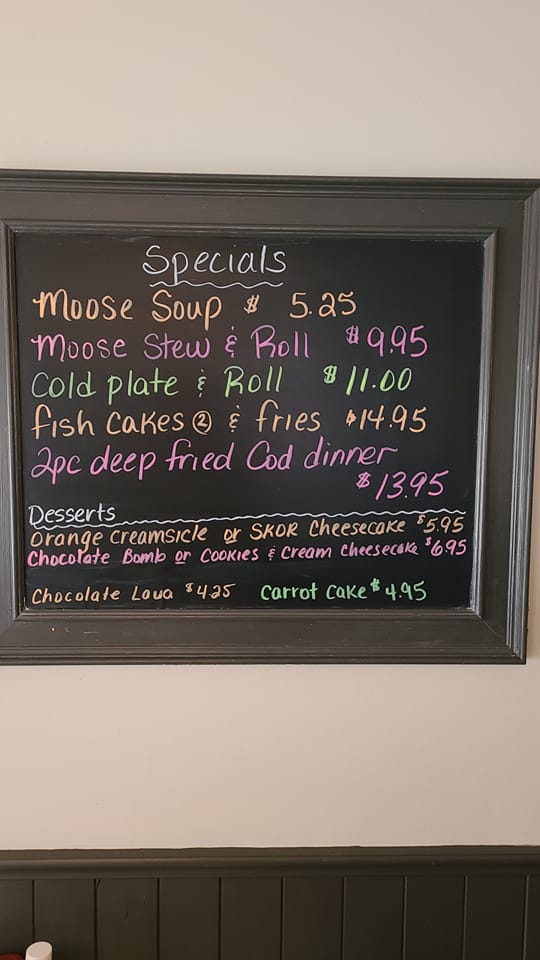 Specials
Moose Soup $ 5.25
Moose Stew & Roll $9.95
Cold plate & Roll $11.00
fish cakes ② & fries $14.95
2pc deep fried Cod dinner
$13.95
Desserts
Orange Creamsicle or SKOR Cheesecake $5.95
Chocolate Bomb or Cookies & Cream Cheesecake $6.95
Chocolate Lava $4.25 Carrot Cake $4.95